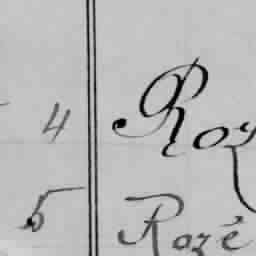 4 Roz
5 Rozé